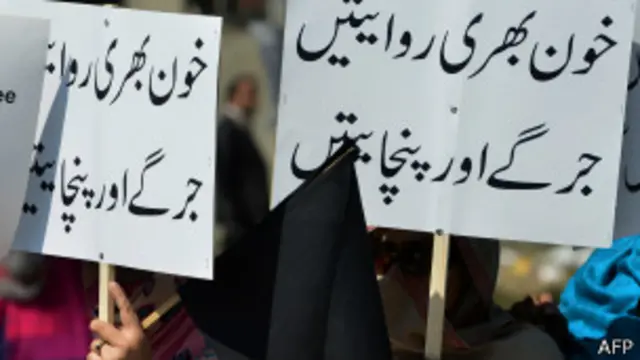 خون بھری روایتیں
جرگے اور پنچایتیں
خون بھری روا
جرگے اور پنچا
ee
AFP